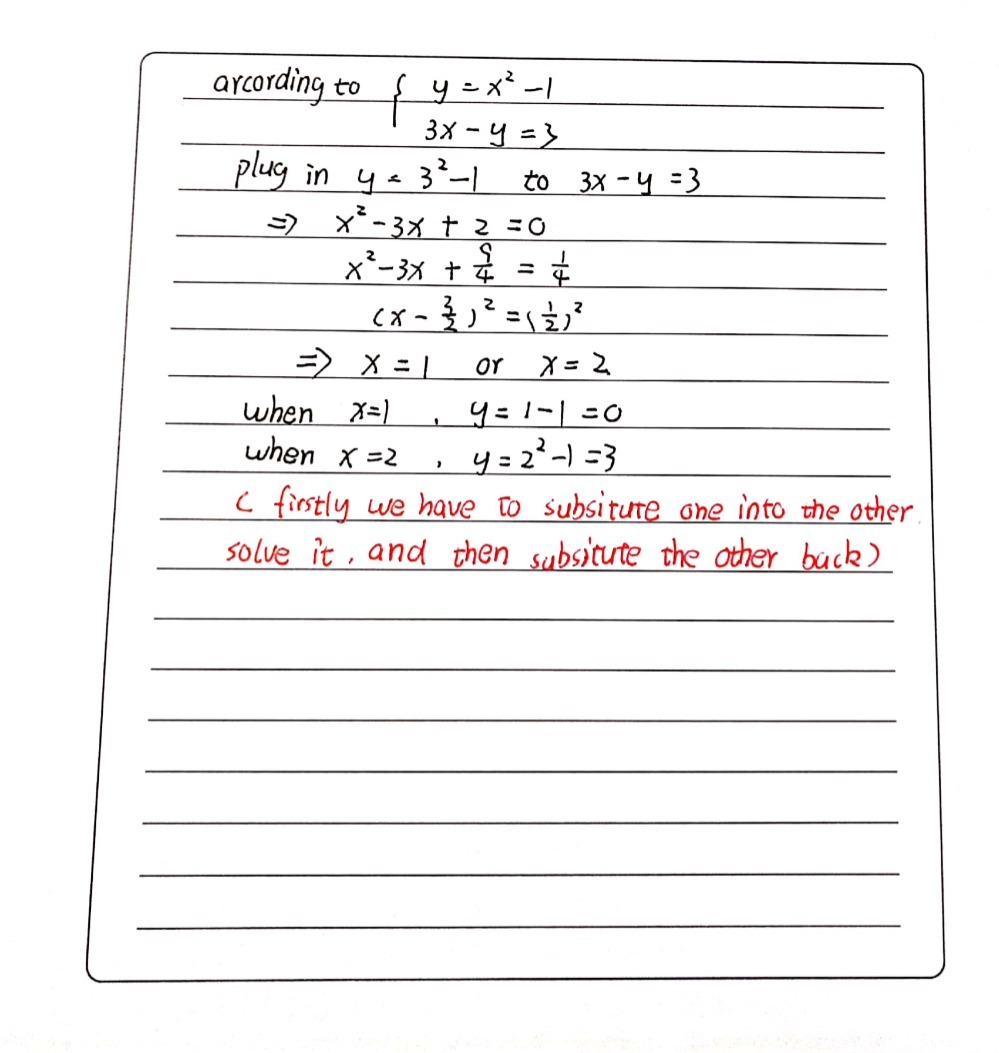 arcording to { y = x² - 1
3x - y = 3
plug in y = 3² - 1 to 3x - y = 3
⇒ x² - 3x + 2 = 0
x² - 3x + 9/4 = 1/4
(x - 3/2)² = (1/2)²
⇒ x = 1 or x = 2
when x=1 , y = 1 - 1 = 0
when x = 2 , y = 2² - 1 = 3
( firstly we have to subsiture one into the other
solve it , and then subsiture the other back)